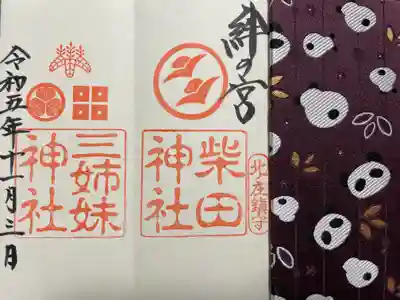 絆の宮
柴田
神社
北庄鎮守
三姉妹
神社
令和五年十一月三日